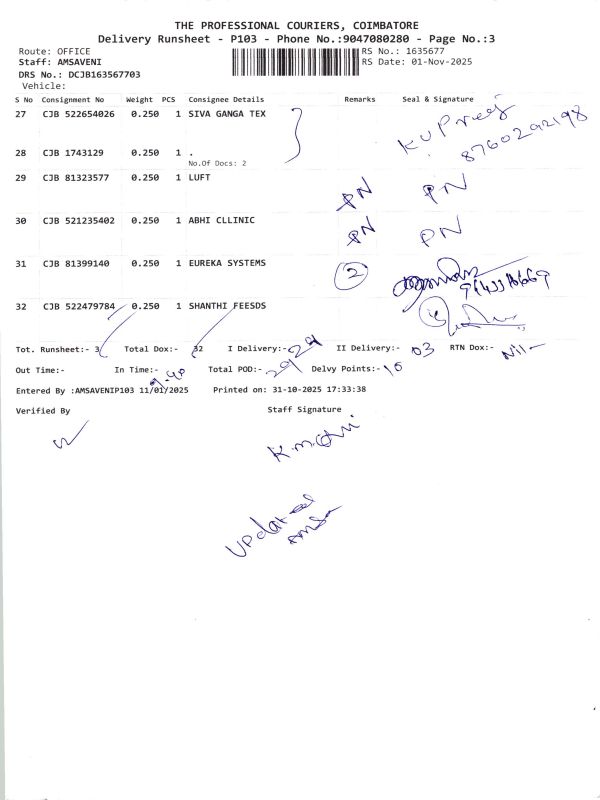 THE PROFESSIONAL COURIERS, COIMBATORE
Delivery Runsheet - P103 - Phone No.:9047080280 - Page No.:3
Route: OFFICE RS No.: 1635677
Staff: AMSAVENI RS Date: 01-Nov-2025
DRS No.: DCJB163567703
Vehicle:
S No Consignment No Weight PCS Consignee Details Remarks Seal & Signature
27 CJB 522654026 0.250 1 SIVA GANGA TEX
8760292198
28 CJB 1743129 0.250 1 .
No.Of Docs: 2
29 CJB 81323577 0.250 1 LUFT PN PN
30 CJB 521235402 0.250 1 ABHI CLLINIC PN PN
31 CJB 81399140 0.250 1 EUREKA SYSTEMS 2
32 CJB 522479784 0.250 1 SHANTHI FEESDS
Tot. Runsheet:- 3 Total Dox:- 32 I Delivery:- 29 II Delivery:- 03 RTN Dox:- Nil
Out Time:- In Time:- 9.40 Total POD:- 29 Delvy Points:- 10
Entered By :AMSAVENIP103 11/01/2025 Printed on: 31-10-2025 17:33:38
Verified By Staff Signature
Updated